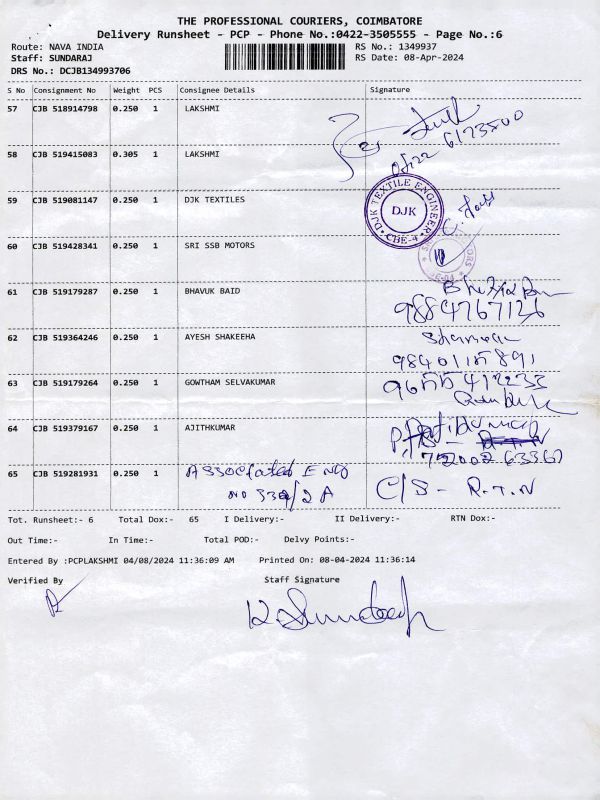 THE PROFESSIONAL COURIERS, COIMBATORE
Delivery Runsheet - PCP - Phone No.:0422-3505555 - Page No.:6
Route: NAVA INDIA
RS No.: 1349937
Staff: SUNDARAJ
RS Date: 08-Apr-2024
DRS No.: DCJB134993706
S No Consignment No Weight PCS Consignee Details Signature
57 CJB 518914798 0.250 1 LAKSHMI
58 CJB 519415083 0.305 1 LAKSHMI
59 CJB 519081147 0.250 1 DJK TEXTILES
DJK TEXTILE ENGINEER
DJK
CBE-4
60 CJB 519428341 0.250 1 SRI SSB MOTORS
61 CJB 519179287 0.250 1 BHAVUK BAID
9884767126
62 CJB 519364246 0.250 1 AYESH SHAKEEHA
63 CJB 519179264 0.250 1 GOWTHAM SELVAKUMAR
64 CJB 519379167 0.250 1 AJITHKUMAR
65 CJB 519281931 0.250 1 Associated Eng C/S - R.T.N
Tot. Runsheet:- 6 Total Dox:- 65 I Delivery:- II Delivery:- RTN Dox:-
Out Time:- In Time:- Total POD:- Delvy Points:-
Entered By :PCPLAKSHMI 04/08/2024 11:36:09 AM Printed On: 08-04-2024 11:36:14
Verified By Staff Signature